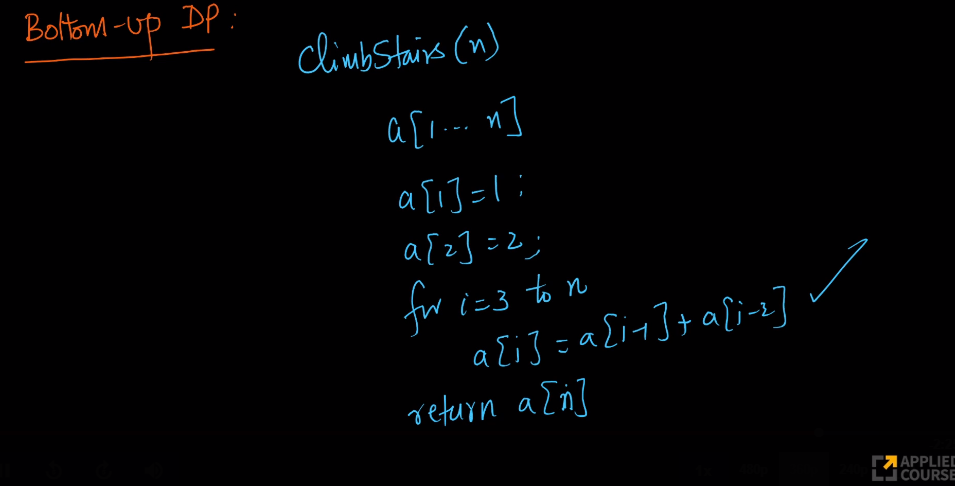 Bottom-up DP:
ClimbStairs (n)
a[1... n]
a[1]=1;
a[2]=2;
for i=3 to n
a[i] = a[i-1] + a[i-2]
return a[n]
APPLIED
COURSE